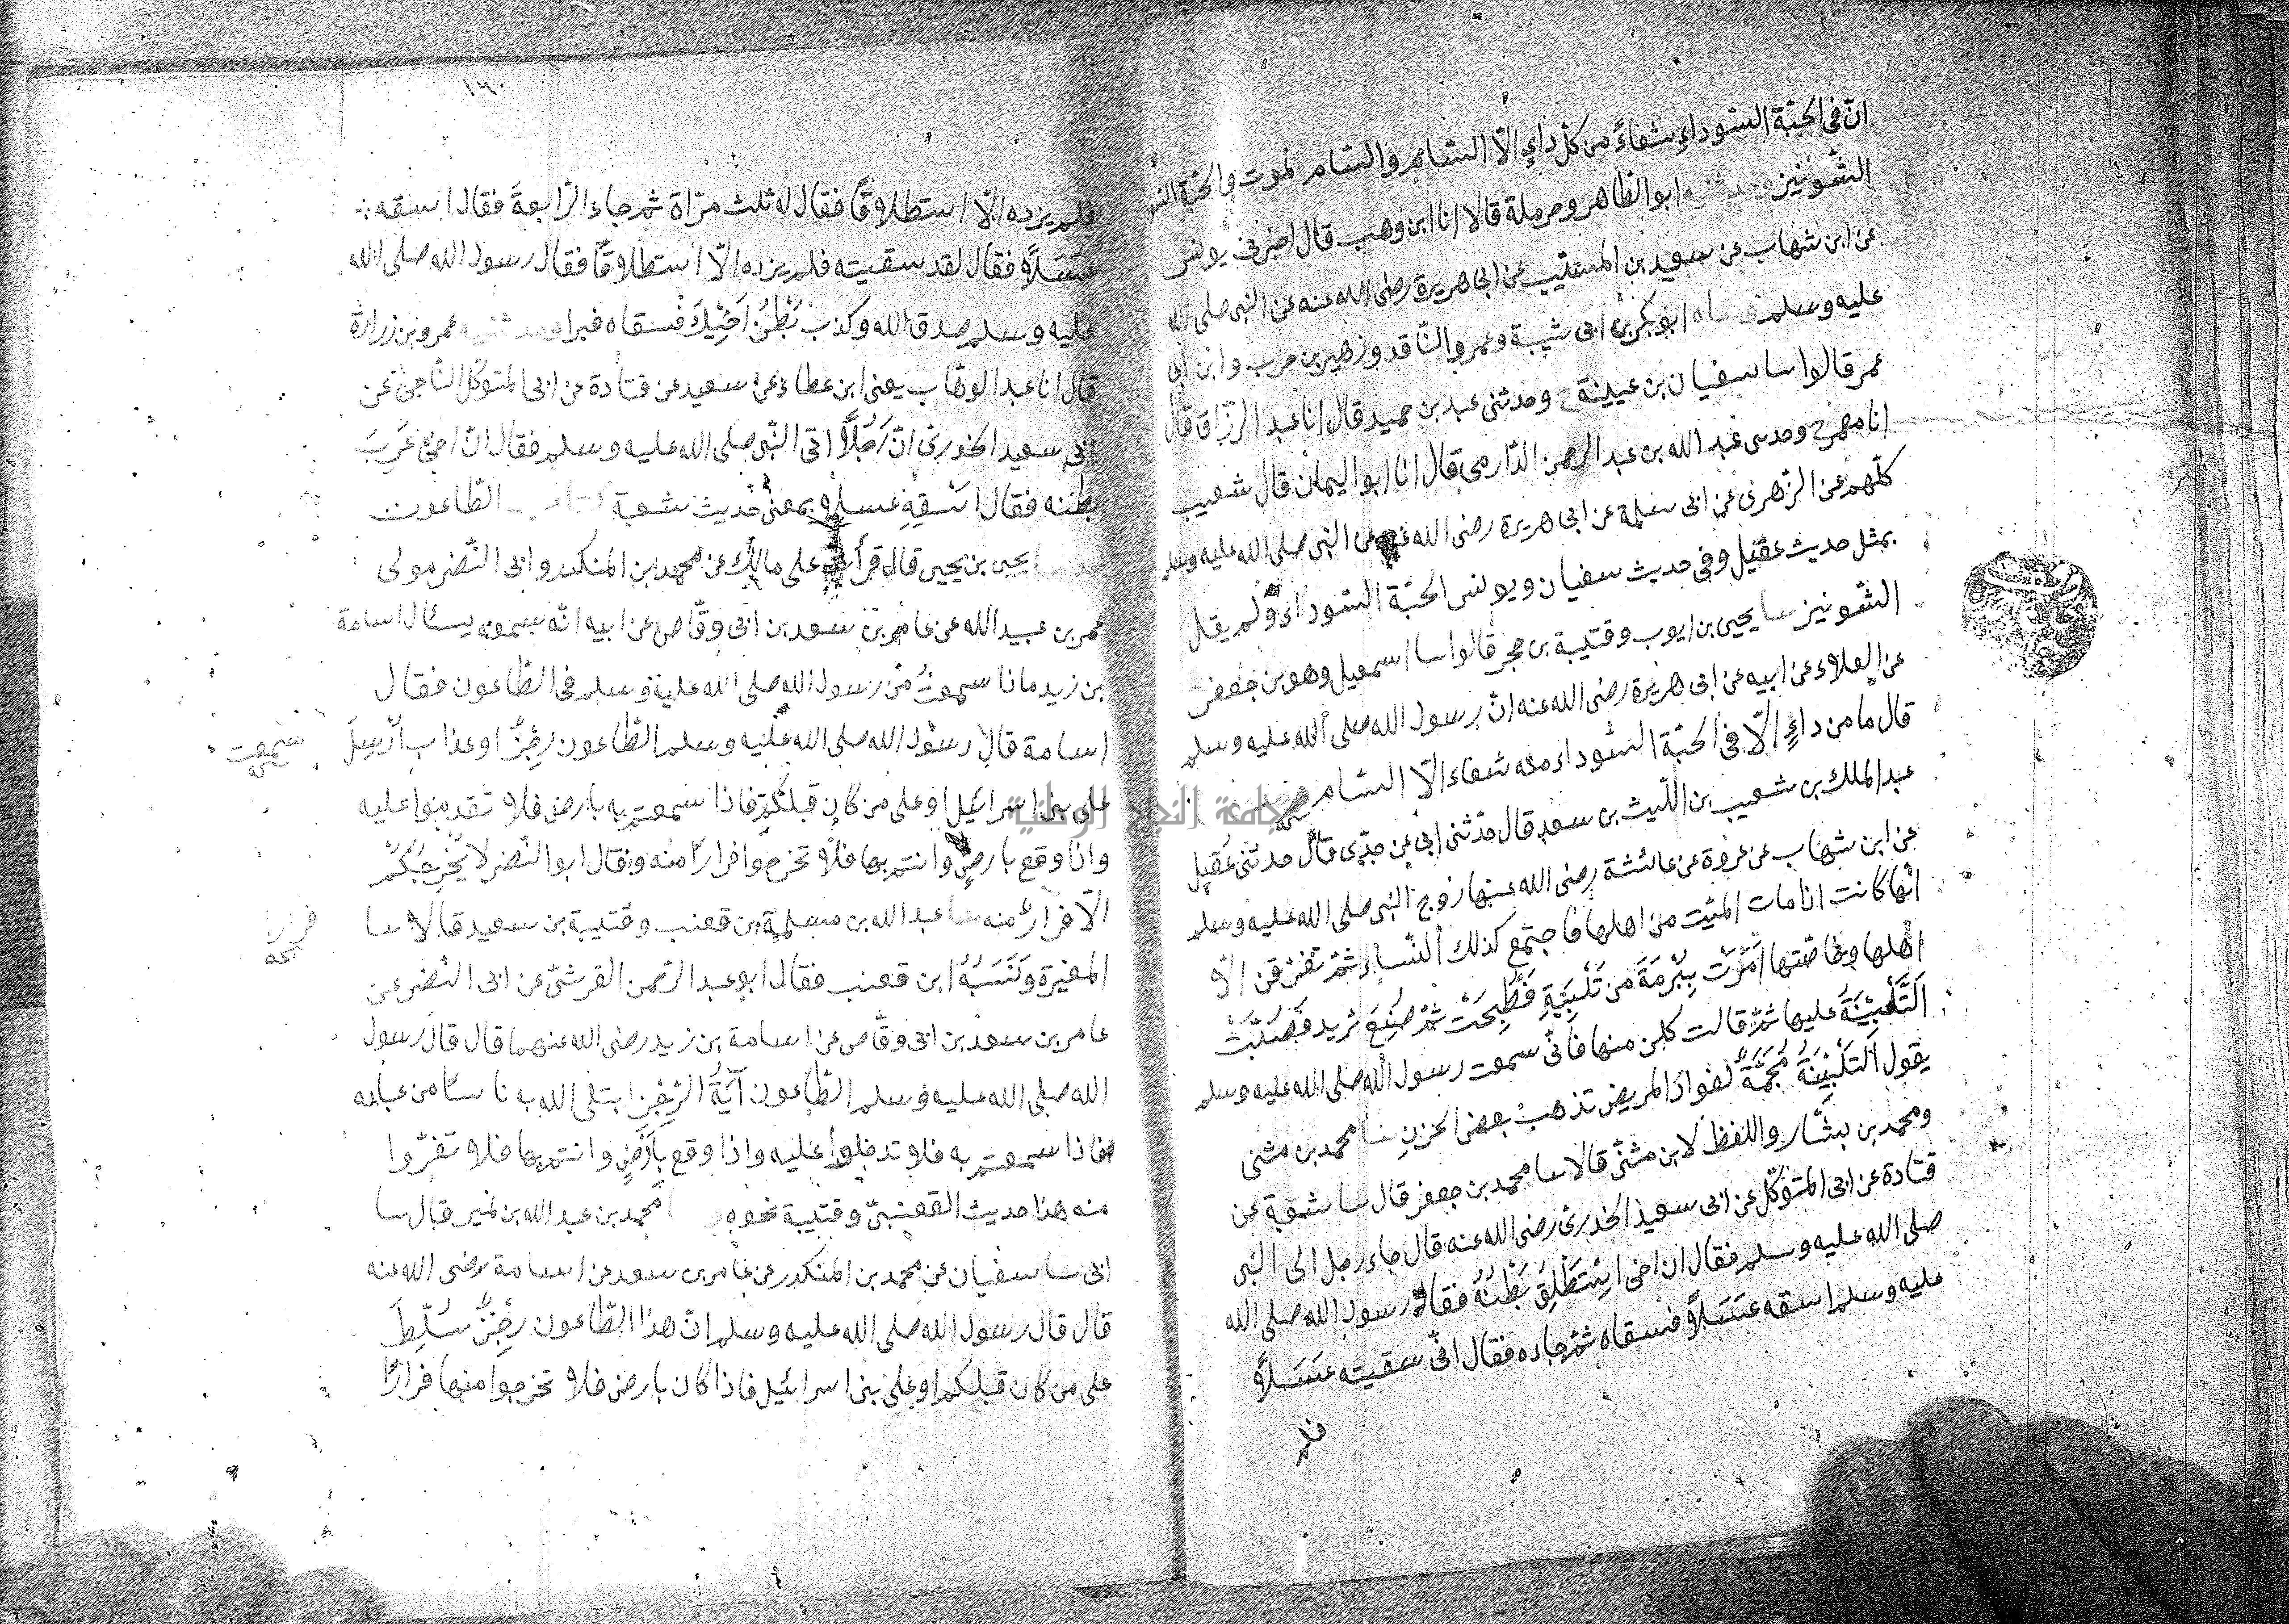 انّ فى الحبّة السّوداءِ شفاءً من كلّ داءٍ الّا السّام والسّام الموت والحبّة السّودا
الشّونيز وحدثنيه ابو الطّاهر وحرملة قالا انا ابن وهب قال اخبرنى يونس
عن ابن شهاب عن سعيد بن المسيّب عن ابى هريرة رضى الله عنه عن النبى صلى الله
عليه وسلم ابو بكر بن ابى شيبة وعمرو النّاقد وزهير بن حرب وابن ابى
عمر قالوا سا سفيان بن عيينة ح وحدثنى عبد بن حميد قال انا عبد الرّزاق قال
انا معمر ح وحدثنى عبد الله بن عبد الرحمن الدّارمى قال انا ابو اليمان قال شعيب
كلّهم عن الزهرى عن ابى سلمة عن ابى هريرة رضى الله عنه عن النبى صلى الله عليه وسلم
بمثل حديث عقيل وفى حديث سفيان ويونس الحبّة السّوداء ولم يقل
الشّونيز سا يحيى بن ايوب وقتيبة بن حجر قالوا سا اسمعيل وهو بن جعفر
عن العلاء عن ابيه عن ابى هريرة رضى الله عنه انّ رسول الله صلى الله عليه وسلم
قال ما من داءٍ الّا فى الحبّة السّوداء منه شفاء الّا السّام
عبد الملك بن شعيب بن اللّيث بن سعد قال حدّثنى ابى عن جدّى قال حدثنى عُقيل
عن ابن شهاب عن عروة عن عائشة رضى الله عنها زوج النبى صلى الله عليه وسلم
انّها كانت اذا مات الميّت من اهلها فاجتمع كذلك النّساء ثمّ تفرّقن الّا
اهلها وخاصّتها اَمَرَت بِبُرْمَةَ من تَلْبِيَنةِ فَطُبِخَتْ ثمّ صُنِعَ ثريد فصُبّتْ
اَلتَّلْبِيْنَةُ عليها ثمّ قالت كلن منها فانّى سمعت رسول الله صلى الله عليه وسلم
يقول اَلتلْبِيْنَةُ مُجِمَّةٌ لفواد المريض تذهب بعض الحزن سا محمد بن مثنى
ومحمد بن بشّار واللفظ لابن مثنّى قالا سا محمد بن جعفر قال سا شعبة عن
قتادة عن ابى المتوكّل عن ابى سعيد الخدرى رضى الله عنه قال جاء رجل الى النبى
صلى الله عليه وسلم فقال ان اخى اِسْتَطْلَقَ بَطْنُهُ فقال رسول الله صلى الله
عليه وسلم اسقه عَسَلاً فسقاه ثمّ جاءه فقال انّى سقيته عَسَلاً
فلم
١٦٠
فلم يزده الّا استطلاقًا فقال له ثلث مرّاة ثم جاء الرّابعةَ فقال اسقه
عَسَلاً فقال لقد سقيته فلم يزده الّا استطلاقًا فقال رسول الله صلى الله
عليه وسلم صدق الله وكذب بَطْنُ اَخِيْكَ فسقاه فبرا وحدثنيه عمرو بن زرارة
قال انا عبد الوهّاب يعنى ابن عطاء عن سعيد عن قتادة عن ابى المتوكّل النّاجىّ عن
ابى سعيد الخدرىّ انّ رَجُلاً اتى النّبى صلى الله عليه وسلم فقال انّ اخى عَرِبَ
بطنه فقال اسْقِهِ عسلا بمعنى حديث شعبة كتاب الطّاعون
حدثنا يحيى بن يحيى قال قرأت على مالك عن محمد بن المنكدر وابى النّضر مولى
عمر بن عبيد الله عن عامر بن سعد بن ابى وقّاص عن ابيه انّه سمعه يسئال اسامة
بن زيد ماذا سمعتُ من رسول الله صلى الله عليه وسلم فى الطّاعون فقال
اسامة قال رسول الله صلى الله عليه وسلم الطّاعون رِجْزٌ او عذاب اُرْسِلَ
سمعت
على بنى اسرائيل او على من كان قبلكم فاذا سمعتم به بارض فلا تقدموا عليه
واذا وقع بارضٍ وانتم بها فلا تخرجوا فرارًا منه وقال ابو النّضر لا يُخْرِجُكُمْ
الّا فرارٌ منه سا عبد الله بن مسلمة بن قعنب وقتيبة بن سعيد قالا سا
فرارا
المغيرة وَنَسَبَهُ ابن قعنب فقال ابو عبد الرّحمن القرشىّ عن ابى النّضر عن
عامر بن سعد بن ابى وقّاص عن اسامة بن زيد رضى الله عنهما قال قال رسول
الله صلى الله عليه وسلم الطّاعون آيَةُ الرِّجْزِ ابتلى الله به ناسًا من عباده
فاذا سمعتم به فلا تدخلوا عليه واذا وقع بِاَرْضٍ وانتم بها فلا تفرّوا
منه هذا حديث القعنبىّ وقتيبة نحوه محمد بن عبد الله بن نمير قال سا
ابى سا سفيان عن محمد بن المنكدر عن عامر بن سعد عن اسامة رضى الله عنه
قال قال رسول الله صلى الله عليه وسلم انّ هذا الطّاعون رِجْزٌ سُلِّطَ
على من كان قبلكم او على بنى اسرائيل فاذا كان بارض فلا تخرجوا منها فرارًا
جامعة النجاح الوطنية